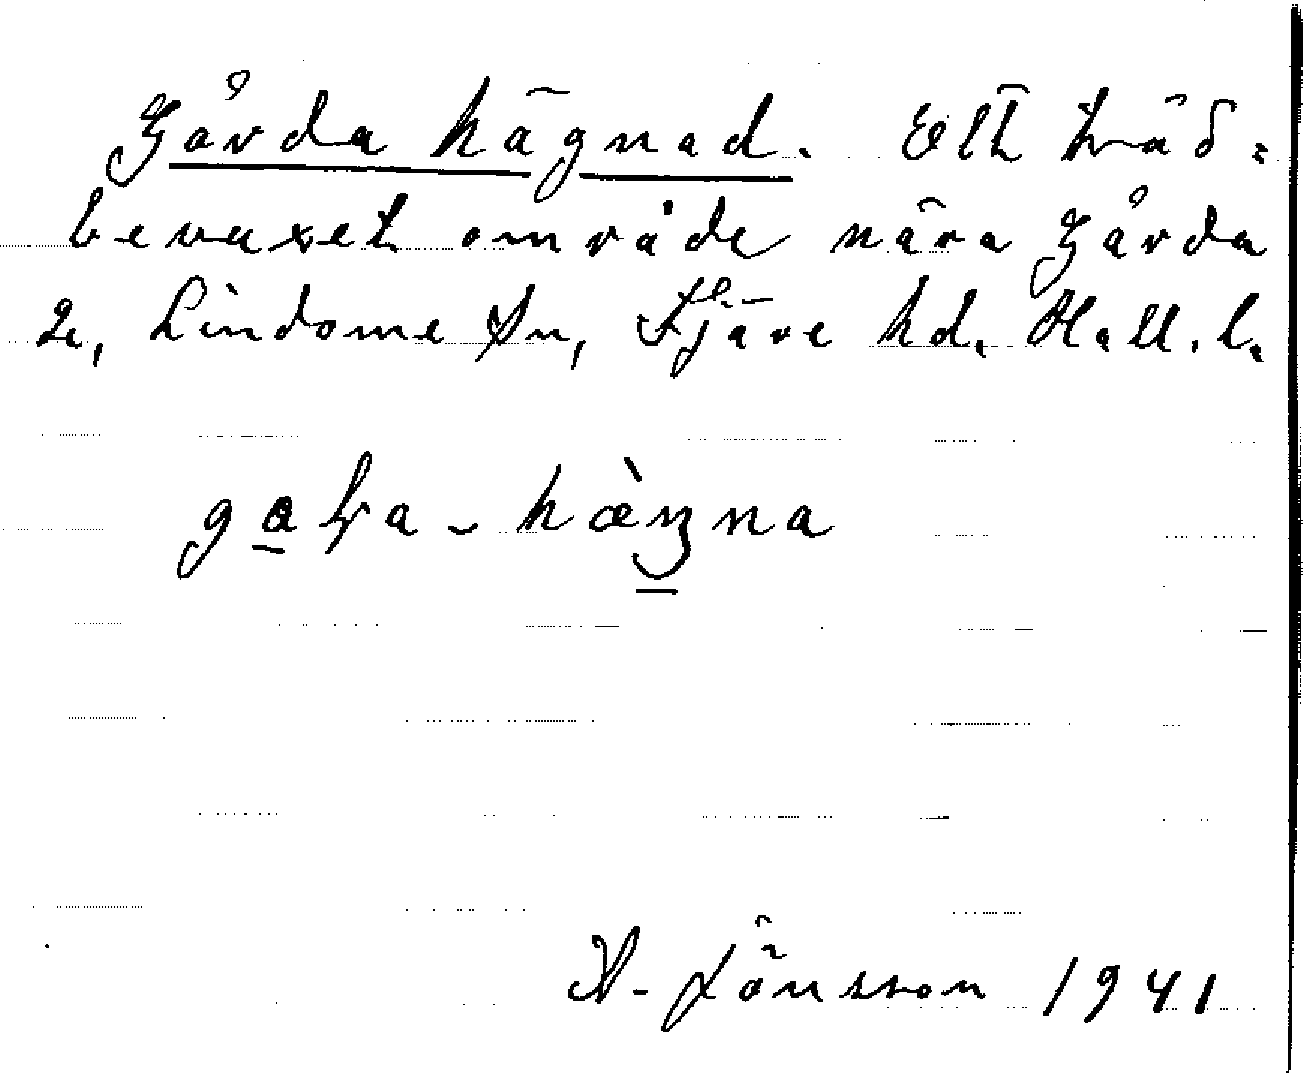 Gårda hägnad. Ett träd-
bevuxet område nära Gårda
2, Lindome sn, Fjäre hd. Hall. l.
A. Jönsson 1941